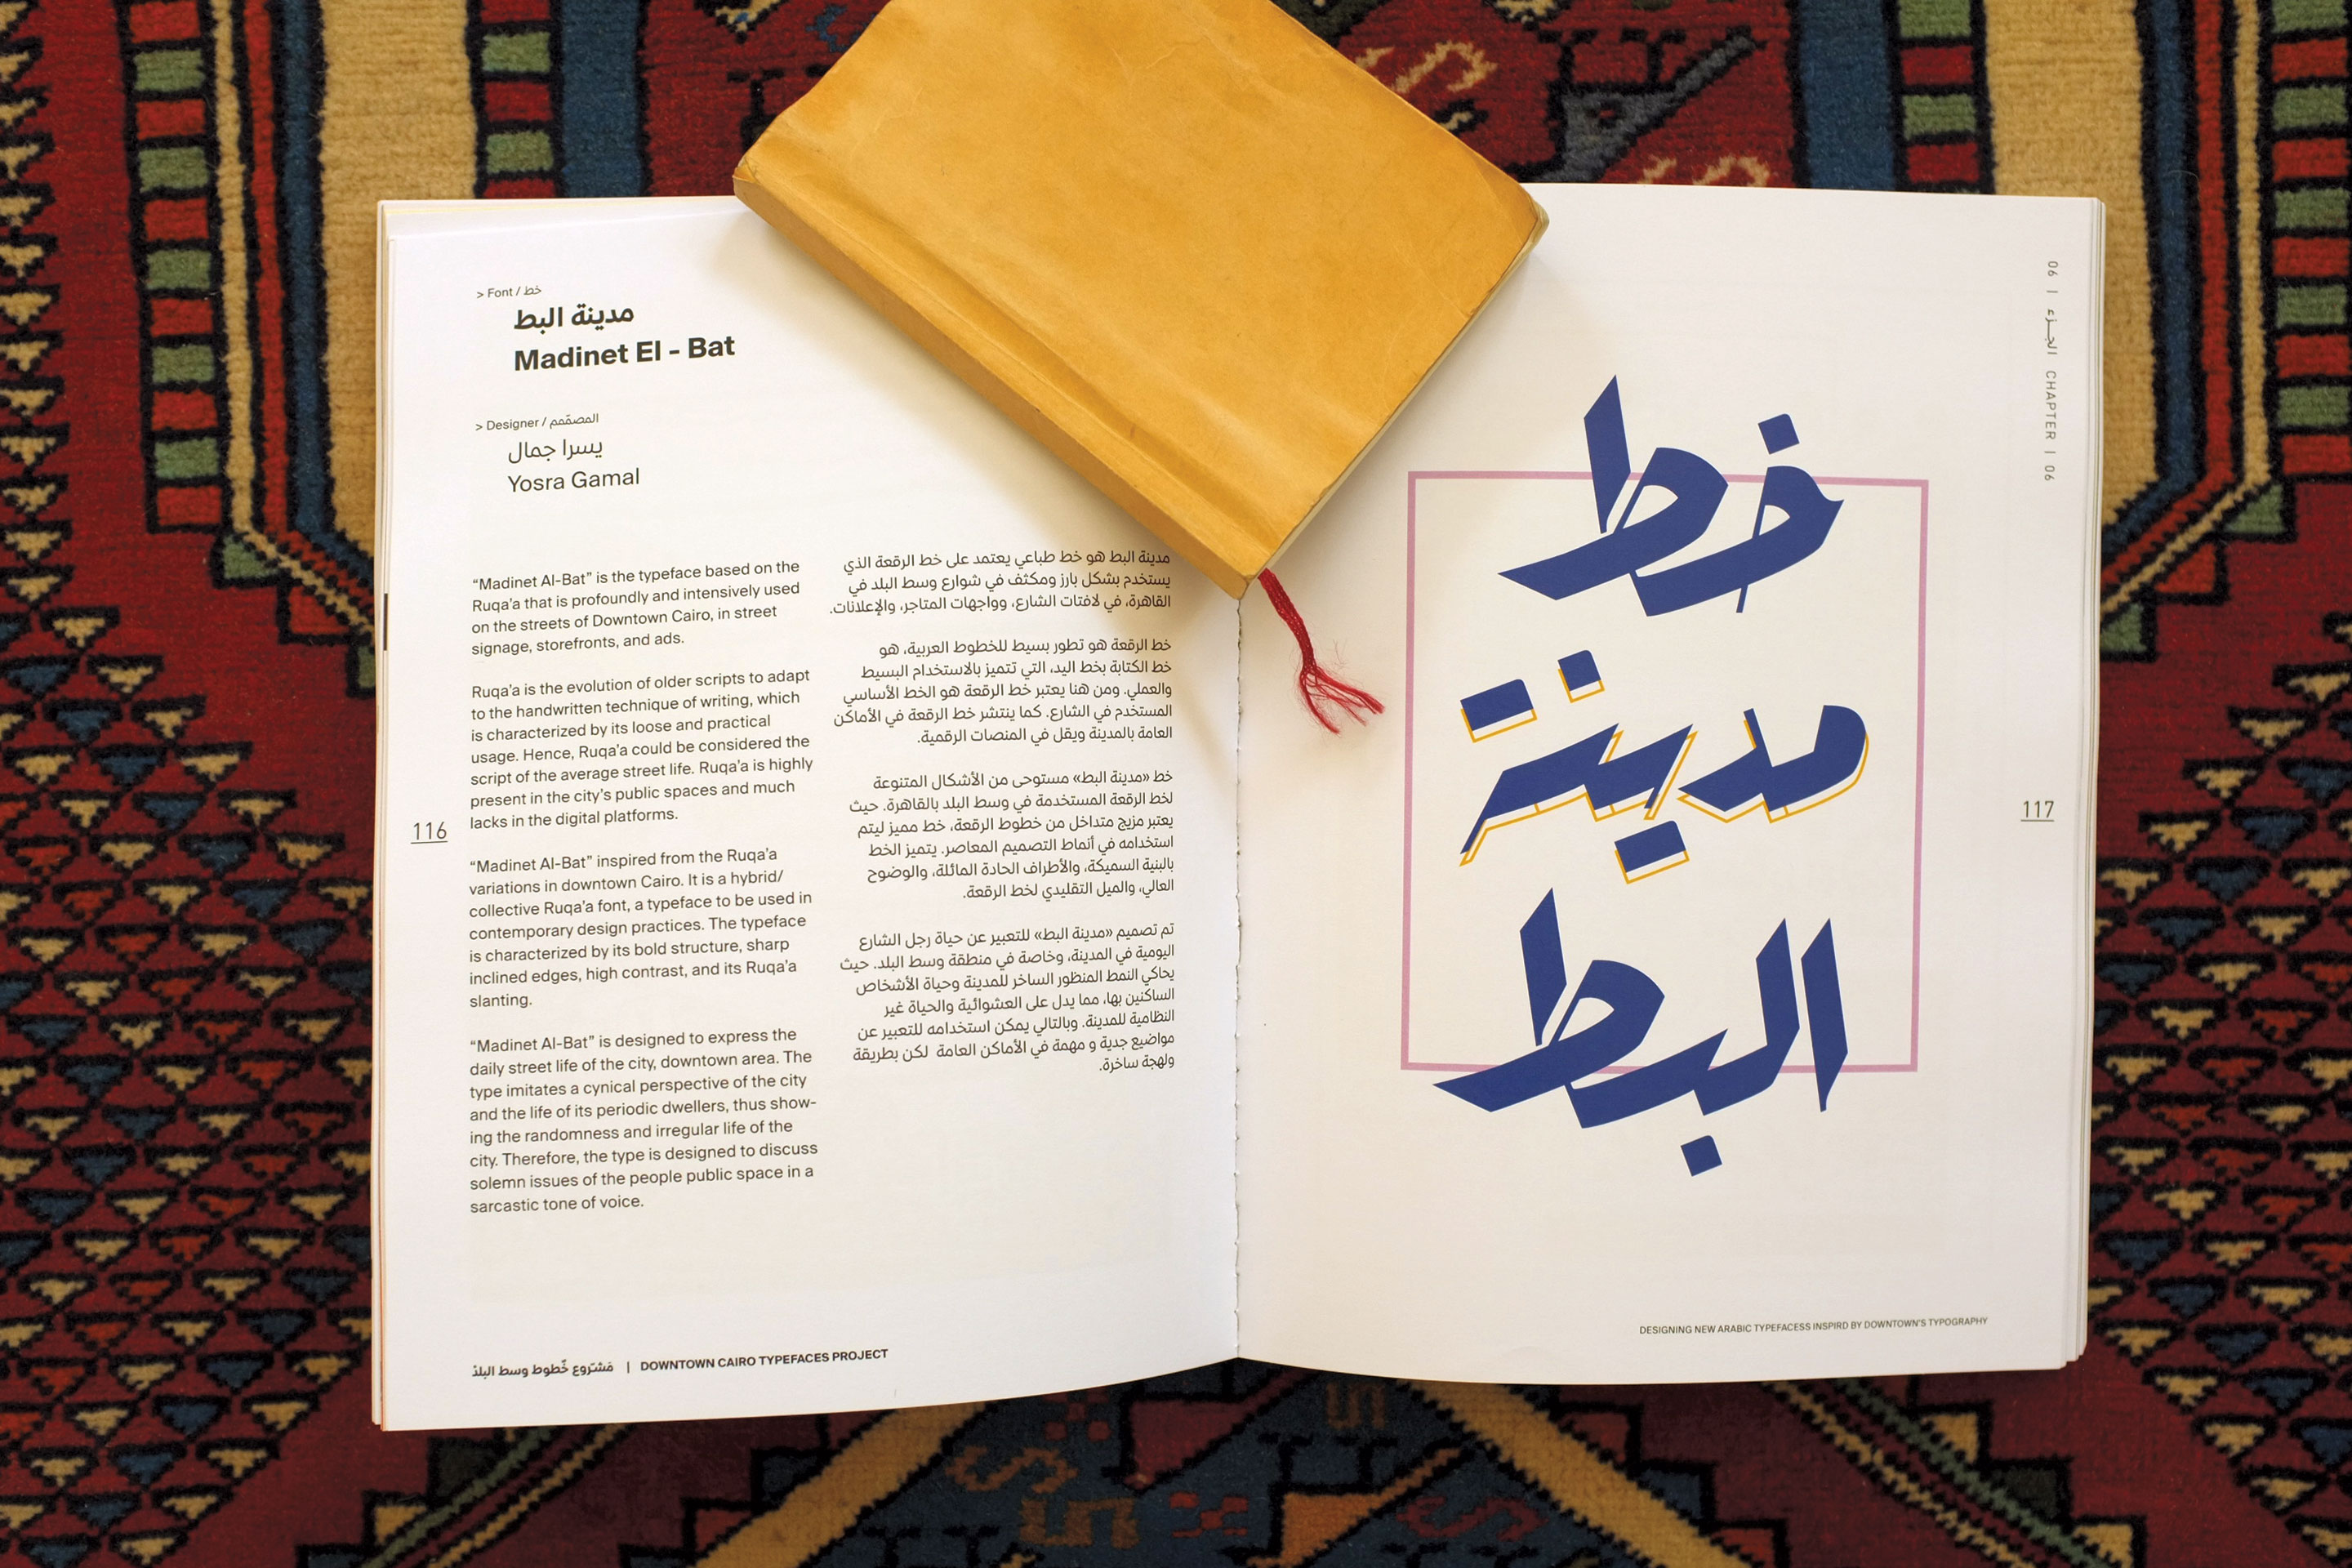 > Font / خط
مدينة البط
Madinet El - Bat
> Designer / المصمّمم
يسرا جمال
Yosra Gamal
“Madinet Al-Bat” is the typeface based on the
Ruqa’a that is profoundly and intensively used
on the streets of Downtown Cairo, in street
signage, storefronts, and ads.
Ruqa’a is the evolution of older scripts to adapt
to the handwritten technique of writing, which
is characterized by its loose and practical
usage. Hence, Ruqa’a could be considered the
script of the average street life. Ruqa’a is highly
present in the city’s public spaces and much
lacks in the digital platforms.
“Madinet Al-Bat” inspired from the Ruqa’a
variations in downtown Cairo. It is a hybrid/
collective Ruqa’a font, a typeface to be used in
contemporary design practices. The typeface
is characterized by its bold structure, sharp
inclined edges, high contrast, and its Ruqa’a
slanting.
“Madinet Al-Bat” is designed to express the
daily street life of the city, downtown area. The
type imitates a cynical perspective of the city
and the life of its periodic dwellers, thus show-
ing the randomness and irregular life of the
city. Therefore, the type is designed to discuss
solemn issues of the people public space in a
sarcastic tone of voice.
مدينة البط هو خط طباعي يعتمد على خط الرقعة الذي
يستخدم بشكل بارز ومكثف في شوارع وسط البلد في
القاهرة، في لافتات الشارع، وواجهات المتاجر، والإعلانات.
خط الرقعة هو تطور بسيط للخطوط العربية، هو
خط الكتابة بخط اليد، التي تتميز بالاستخدام البسيط
والعملي. ومن هنا يعتبر خط الرقعة هو الخط الأساسي
المستخدم في الشارع. كما ينتشر خط الرقعة في الأماكن
العامة بالمدينة ويقل في المنصات الرقمية.
خط «مدينة البط» مستوحى من الأشكال المتنوعة
لخط الرقعة المستخدمة في وسط البلد بالقاهرة. حيث
يعتبر مزيج متداخل من خطوط الرقعة، خط مميز ليتم
استخدامه في أنماط التصميم المعاصر. يتميز الخط
بالبنية السميكة، والأطراف الحادة المائلة، والوضوح
العالي، والميل التقليدي لخط الرقعة.
تم تصميم «مدينة البط» للتعبير عن حياة رجل الشارع
اليومية في المدينة، وخاصة في منطقة وسط البلد. حيث
يحاكي النمط المنظور الساخر للمدينة وحياة الأشخاص
الساكنين بها، مما يدل على العشوائية والحياة غير
النظامية للمدينة. وبالتالي يمكن استخدامه للتعبير عن
مواضيع جدية و مهمة في الأماكن العامة لكن بطريقة
ولهجة ساخرة.
116
مشروع خطوط وسط البلد | DOWNTOWN CAIRO TYPEFACES PROJECT
06 | الجزء CHAPTER | 06
خط
مدينة
البط
117
DESIGNING NEW ARABIC TYPEFACESS INSPIRD BY DOWNTOWN'S TYPOGRAPHY